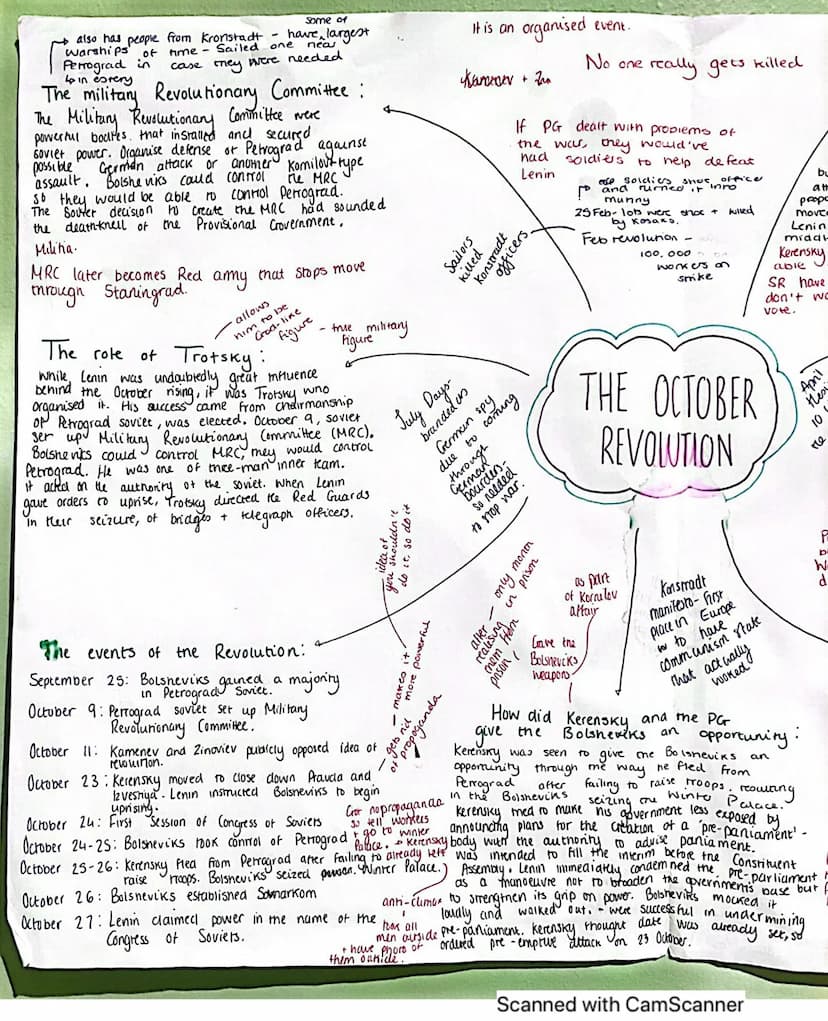 some of
↳ also has people from Kronstadt - have largest
warships of time - Sailed one near
Petrograd in case they were needed
The military Revolutionary Committee :
The Military Revolutionary Committee were
powerful bodies that installed and secured
soviet power. Organise defense of Petrograd against
possible German attack or another Komilov-type
assault. Bolsheviks could control the MRC
so they would be able to control Petrograd.
The Soviet decision to create the MRC had sounded
the death-knell of the Provisional Government.
Militia.
MRC later becomes Red army that stops move
through Staningrad.
It is an organised event.
No one really gets killed
If PG dealt with problems of
the war, they would've
had soldiers to help defeat
Lenin
soldiers shot office
and turned it into
mutiny
25 Feb - lots were shot + killed
by Kosaks.
Feb revolution -
100.000
workers on
strike
Sailors
killed
Konstradt
officers
bu
att
propo
movem
Lenin
middl
Kerensky
able
SR have
don't wa
vote.
THE OCTOBER
REVOLUTION
April
10
the
allows
him to be
God-like
figure
- true military
figure
The role of Trotsky :
While Lenin was undoubtedly great influence
behind the October rising, it was Trotsky who
organised it. His success came from chairmanship
of Petrograd soviet, was elected. October 9, soviet
set up Military Revolutionary Committee (MRC).
Bolsheviks could control MRC, they would control
Petrograd. He was one of three-man inner team.
it acted on the authority of the soviet. When Lenin
gave orders to uprise, Trotsky directed the Red Guards
in their seizure, of bridges + telegraph officers.
July Days-
branded as
German spy
due to coming
through
German
bourden-
so needed
to stop war.
idea of
you shouldn't
do it, so do it
- makes it
more powerful
or gets rid
propaganda
after - only month
realising in prison
them from
prison
as part
of Kornilov
affair
Gave the
Bolsheviks
weapons
Konstradt
manifesto - first
place in Europe
to have
communism state
that actually
worked
The events of the Revolution :
September 25: Bolsheviks gained a majority
in Petrograd Soviet.
October 9 : Petrograd soviet set up Military
Revolutionary Committee.
October 11: Kamenev and Zinoviev publicly opposed idea of
revolution.
October 23 : Kerensky moved to close down Pravda and
Izvestiya - Lenin instructed Bolsheviks to begin
uprising.
October 24: First Session of Congress of Soviets
October 24-25: Bolsheviks took control of Petrograd
October 25-26: Kerensky fled from Petrograd after failing to
raise troops. Bolsheviks seized Winter Palace.
October 26 : Bolsheviks established Sovnarkom
October 27 : Lenin claimed power in the name of the
Congress of Soviets.
Got no propaganda
so tell workers
+ go to winter
Palace. - Kerensky
already left
anti-climax
has all
men outside
+ have photo of
them outside.
How did Kerensky and the PG
give the Bolsheviks an opportunity :
Kerensky was seen to give the Bolsheviks an
opportunity through the way he fled from
Petrograd after failing to raise troops, resulting
in the Bolsheviks seizing the Winter Palace.
Kerensky tried to make his government less exposed by
announcing plans for the creation of a 'pre-parliament' -
body with the authority to advise parliament.
was intended to fill the interim before the Constituent
Assembly. Lenin immediately condemned the pre-parliament
as a manoeuvre not to broaden the governments base but
to strengthen its grip on power. Bolsheviks mocked it
loudly and walked out. - were successful in undermining
pre-parliament. Kerensky thought date was already set, so
ordered pre-emptive attack on 23 October.
Scanned with CamScanner